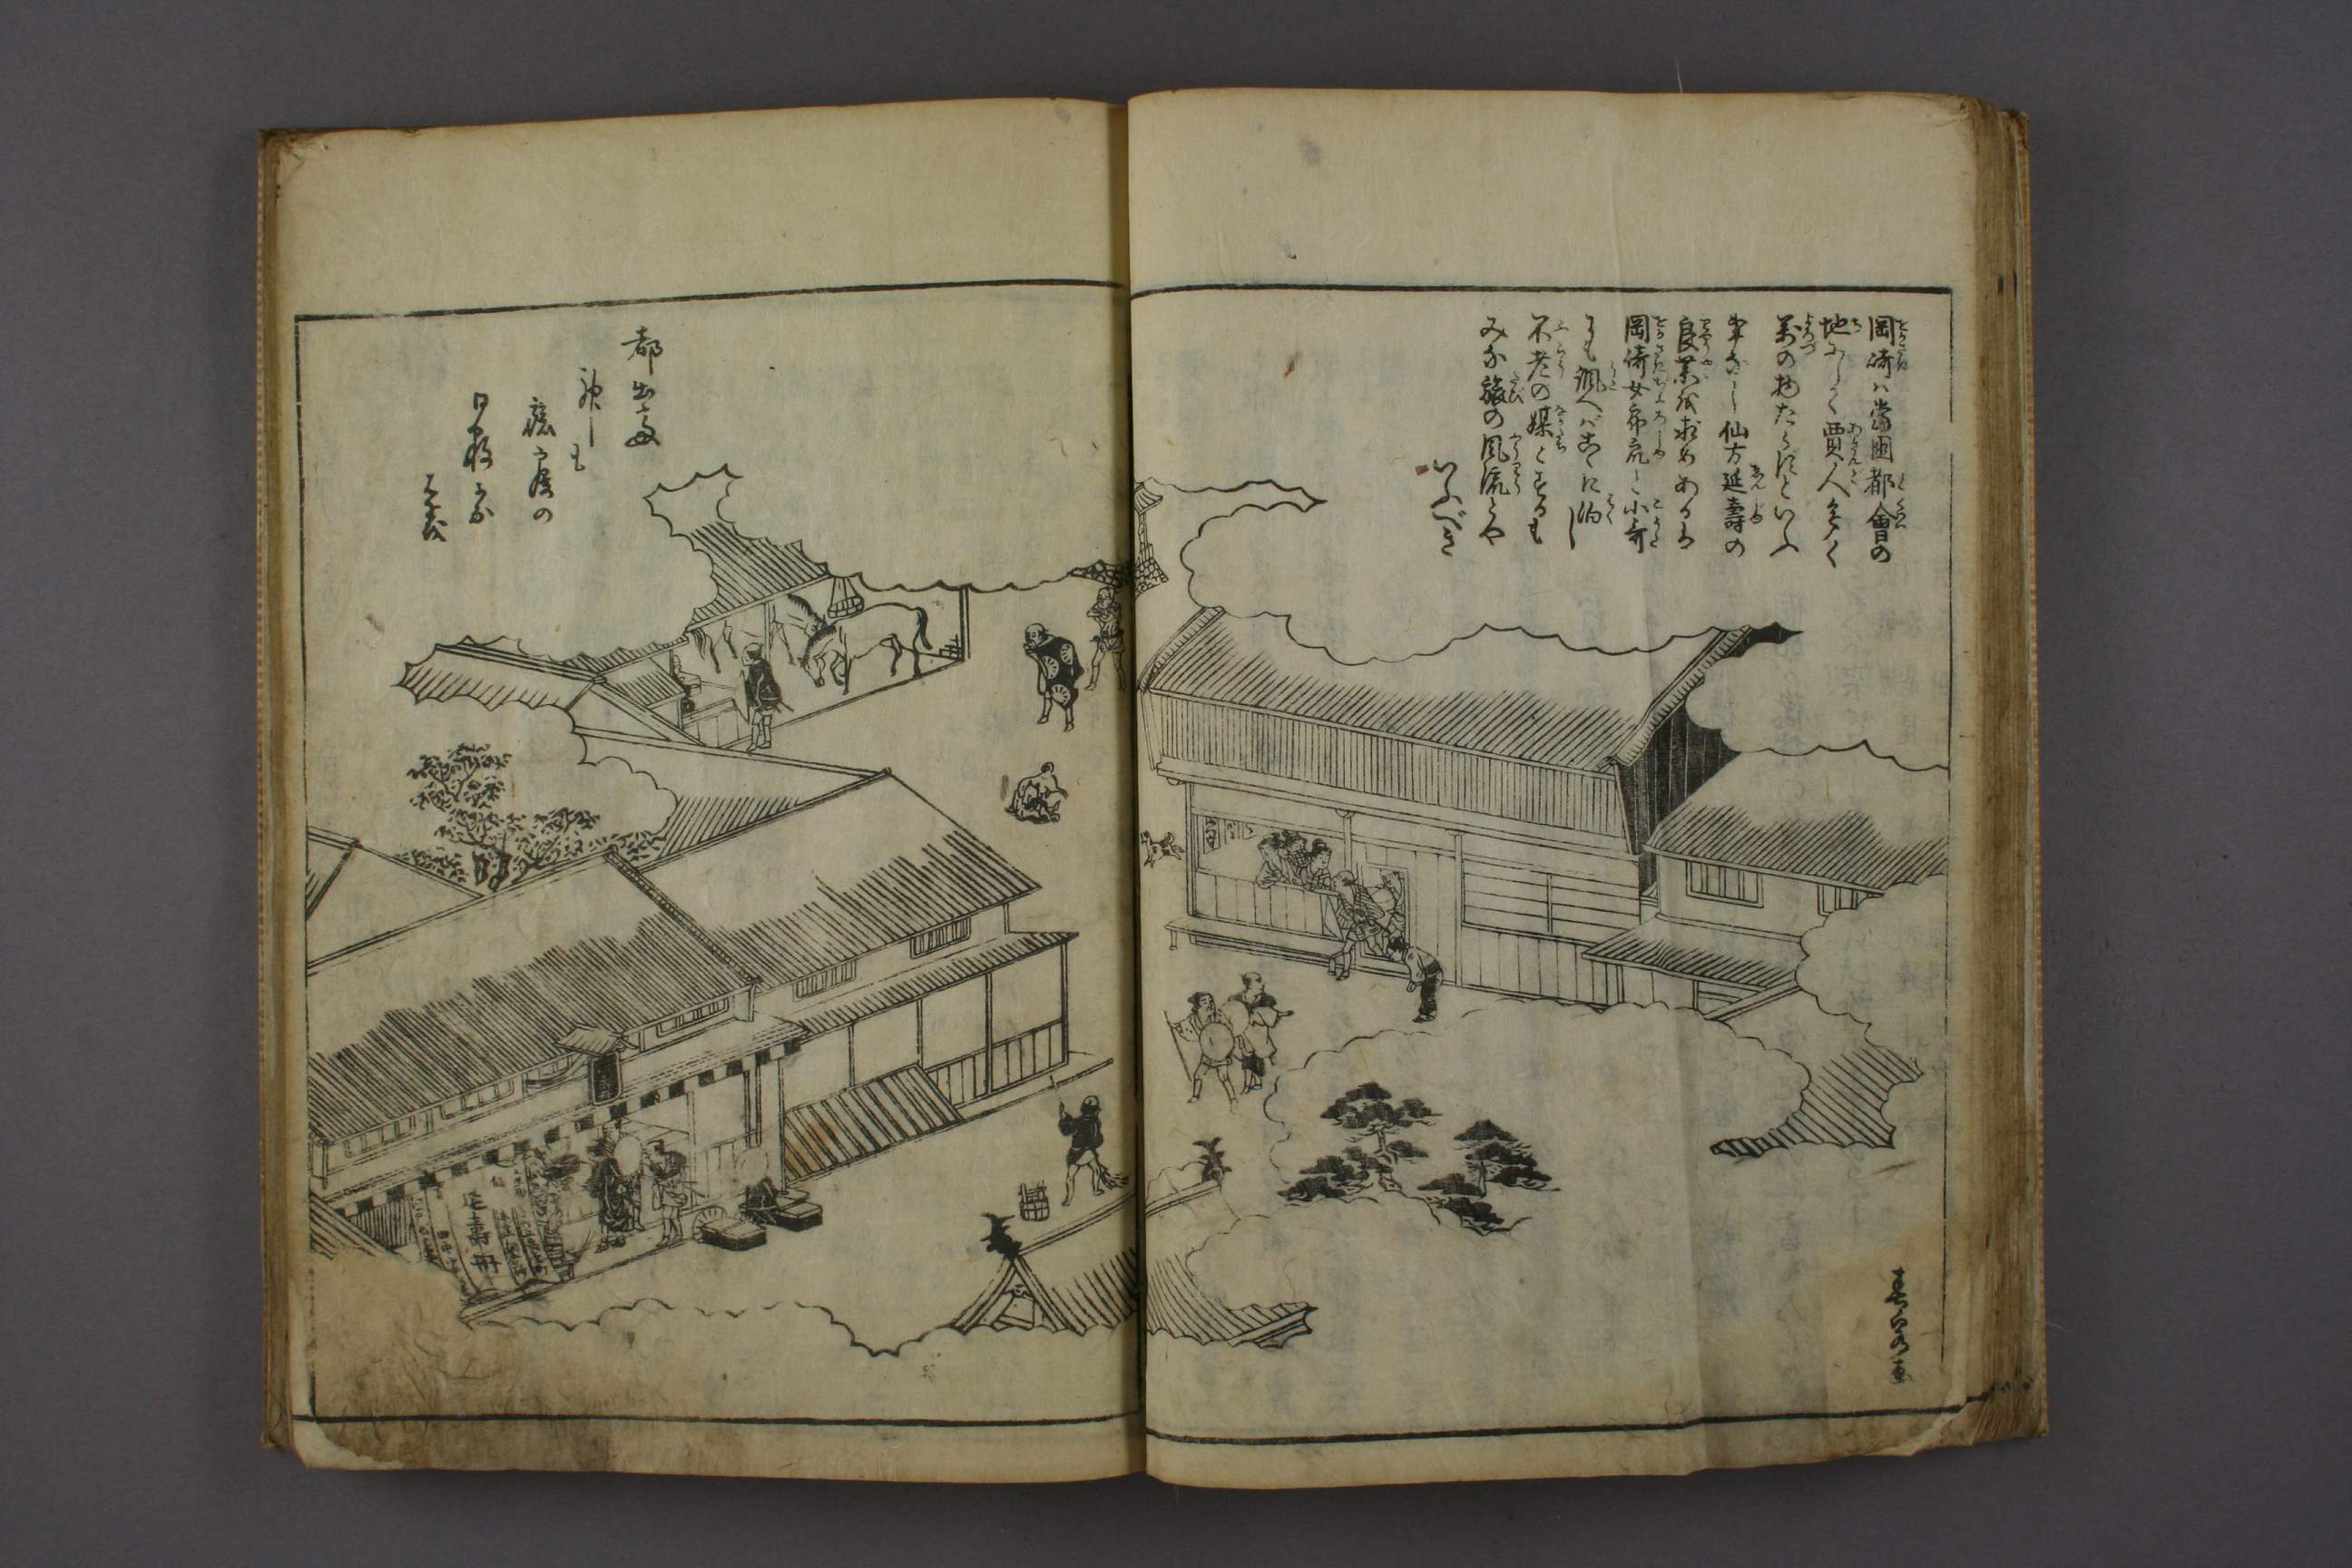 岡崎ハ當国都會の
地にして賈人多く
萬の物たらずといふ
事なし仙方延壽の
良薬を求めあるは
岡崎女郎衆と小哥
にも諷へばこゝに泊し
不老の媒とするも
みな旅の風流とや
いふべき
都出て
神も
旅寝の
日数かな
はせを
延壽丹
春泉画